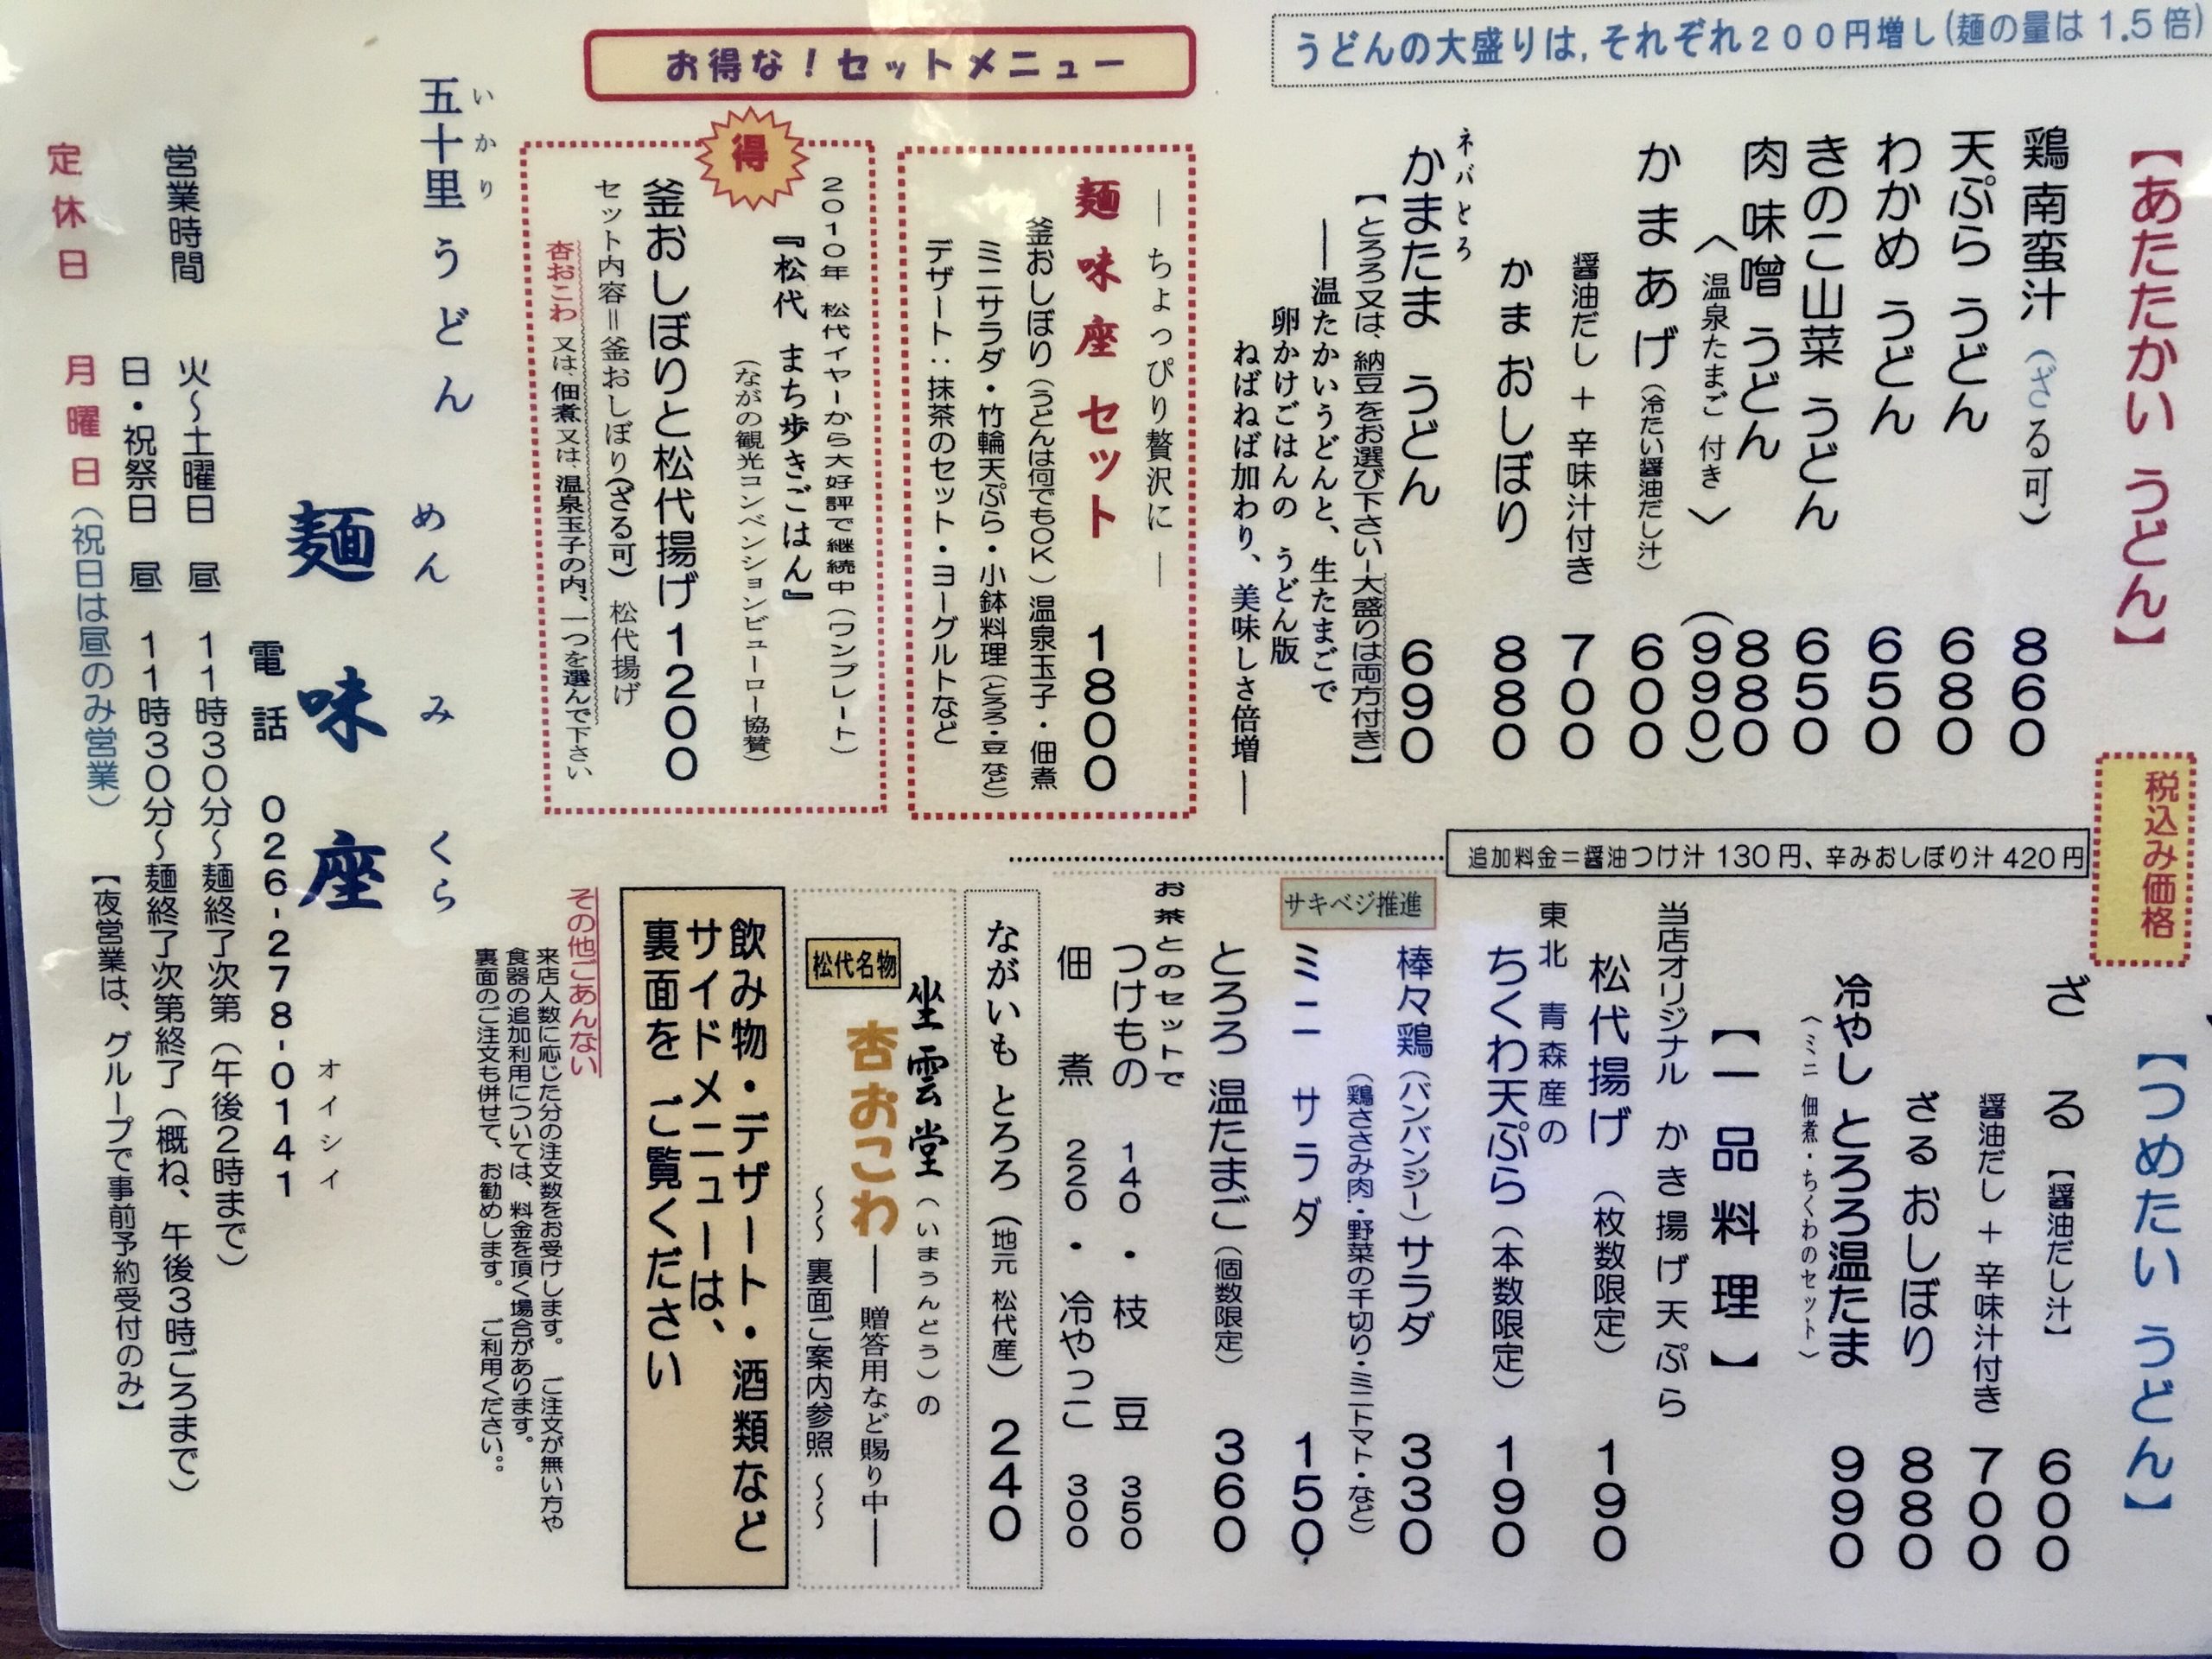 うどんの大盛りは,それぞれ200円増し(麺の量は1.5倍)
【あたたかい うどん】
税込み価格
鶏南蛮汁(ざる可) 860
天ぷら うどん 680
わかめ うどん 650
きのこ山菜 うどん 650
肉味噌 うどん 880
〈温泉たまご 付き〉 (990)
かまあげ(冷たい醤油だし汁) 600
醤油だし + 辛味汁付き 700
かま おしぼり 880
ネバとろ
かまたま うどん 690
【とろろ又は、納豆をお選び下さい-大盛りは両方付き】
――温たかいうどんと、生たまごで
卵かけごはんの うどん版
ねばねば加わり、美味しさ倍増――
お得な!セットメニュー
―ちょっぴり贅沢に―
麺味座セット 1800
釜おしぼり(うどんは何でもOK)温泉玉子・佃煮
ミニサラダ・竹輪天ぷら・小鉢料理(とろろ・豆など)
デザート:抹茶のセット・ヨーグルトなど
得
2010年 松代イヤーから大好評で継続中(ワンプレート)
『松代 まち歩きごはん』
(ながの観光コンベンションビューロー協賛)
釜おしぼりと松代揚げ1200
セット内容=釜おしぼり(ざる可) 松代揚げ
杏おこわ 又は、佃煮又は、温泉玉子の内、一つを選んで下さい
【つめたい うどん】
ざる【醤油だし汁】 600
醤油だし + 辛味汁付き 700
ざる おしぼり 880
冷やし とろろ温たま 990
〈ミニ 佃煮・ちくわのセット〉
追加料金=醤油つけ汁130円、辛みおしぼり汁420円
【一品料理】
当店オリジナル かき揚げ天ぷら
松代揚げ(枚数限定) 190
東北 青森産の
ちくわ天ぷら(本数限定) 190
サキベジ推進
棒々鶏(バンバンジー)サラダ 330
(鶏ささみ肉・野菜の千切り・ミニトマト・など)
ミニ サラダ 150
とろろ 温たまご(個数限定) 360
お茶とのセットで
つけもの 140・枝 豆 350
佃 煮 220・冷やっこ 300
ながいも とろろ(地元 松代産) 240
坐雲堂(いまうんどう)の
松代名物
杏おこわ――贈答用など賜り中――
～～ 裏面ご案内参照 ～～
飲み物・デザート・酒類など
サイドメニューは、
裏面を ご覧ください
その他ごあんない
来店人数に応じた分の注文数をお受けします。 ご注文が無い方や
食器の追加利用については、料金を頂く場合があります。
裏面のご注文も併せて、お勧めします。 ご利用ください。。
いかり
五十里うどん
めん み くら
麺味座
オイシイ
電話 026-278-0141
営業時間 火～土曜日 昼 11時30分～麺終了次第(午後2時まで)
日・祝祭日 昼 11時30分～麺終了次第終了(概ね、午後3時ごろまで)
【夜営業は、グループで事前予約受付のみ】
定休日 月曜日(祝日は昼のみ営業)